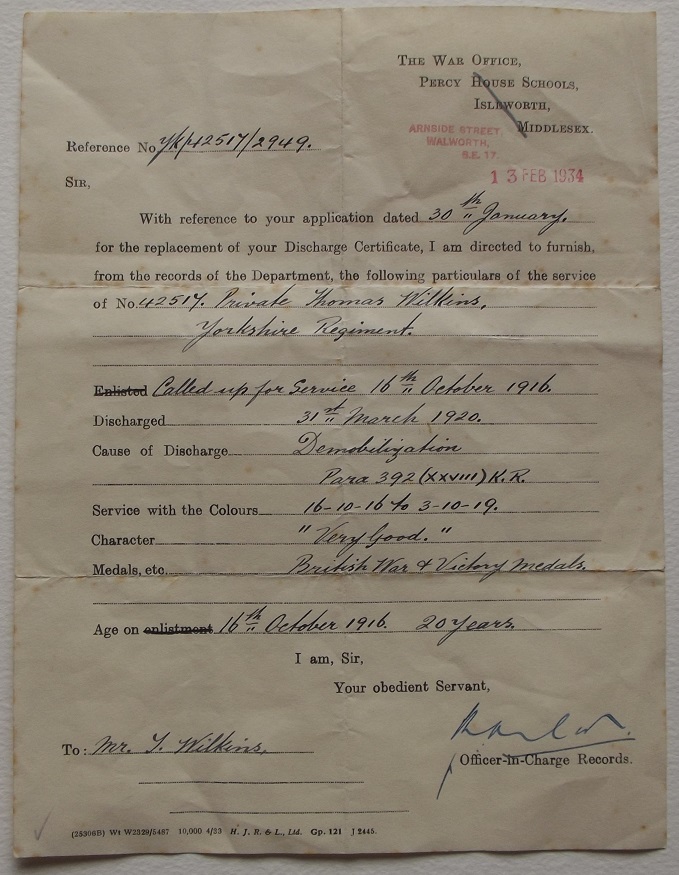 THE WAR OFFICE,
PERCY HOUSE SCHOOLS,
ISLEWORTH,
MIDDLESEX.
ARNSIDE STREET,
WALWORTH,
S.E. 17.
13 FEB 1934
Reference No YK/42517/2949.
SIR,
With reference to your application dated 30th January,
for the replacement of your Discharge Certificate, I am directed to furnish,
from the records of the Department, the following particulars of the service
of No. 42517. Private Thomas Wilkins,
Yorkshire Regiment.
Enlisted Called up for Service 16th October 1916.
Discharged 31st March 1920.
Cause of Discharge Demobilization
Para 392 (XXVIII) K.R.
Service with the Colours 16-10-16 to 3-10-19.
Character "Very Good."
Medals, etc. British War & Victory Medals.
Age on enlistment 16th October 1916. 20 years.
I am, Sir,
Your obedient Servant,
To: Mr. T. Wilkins,
Officer-in-Charge Records.
(25306B) Wt W2329/5467 10,000 4/33 H. J. R. & L., Ltd. Gp. 121 J 2445.